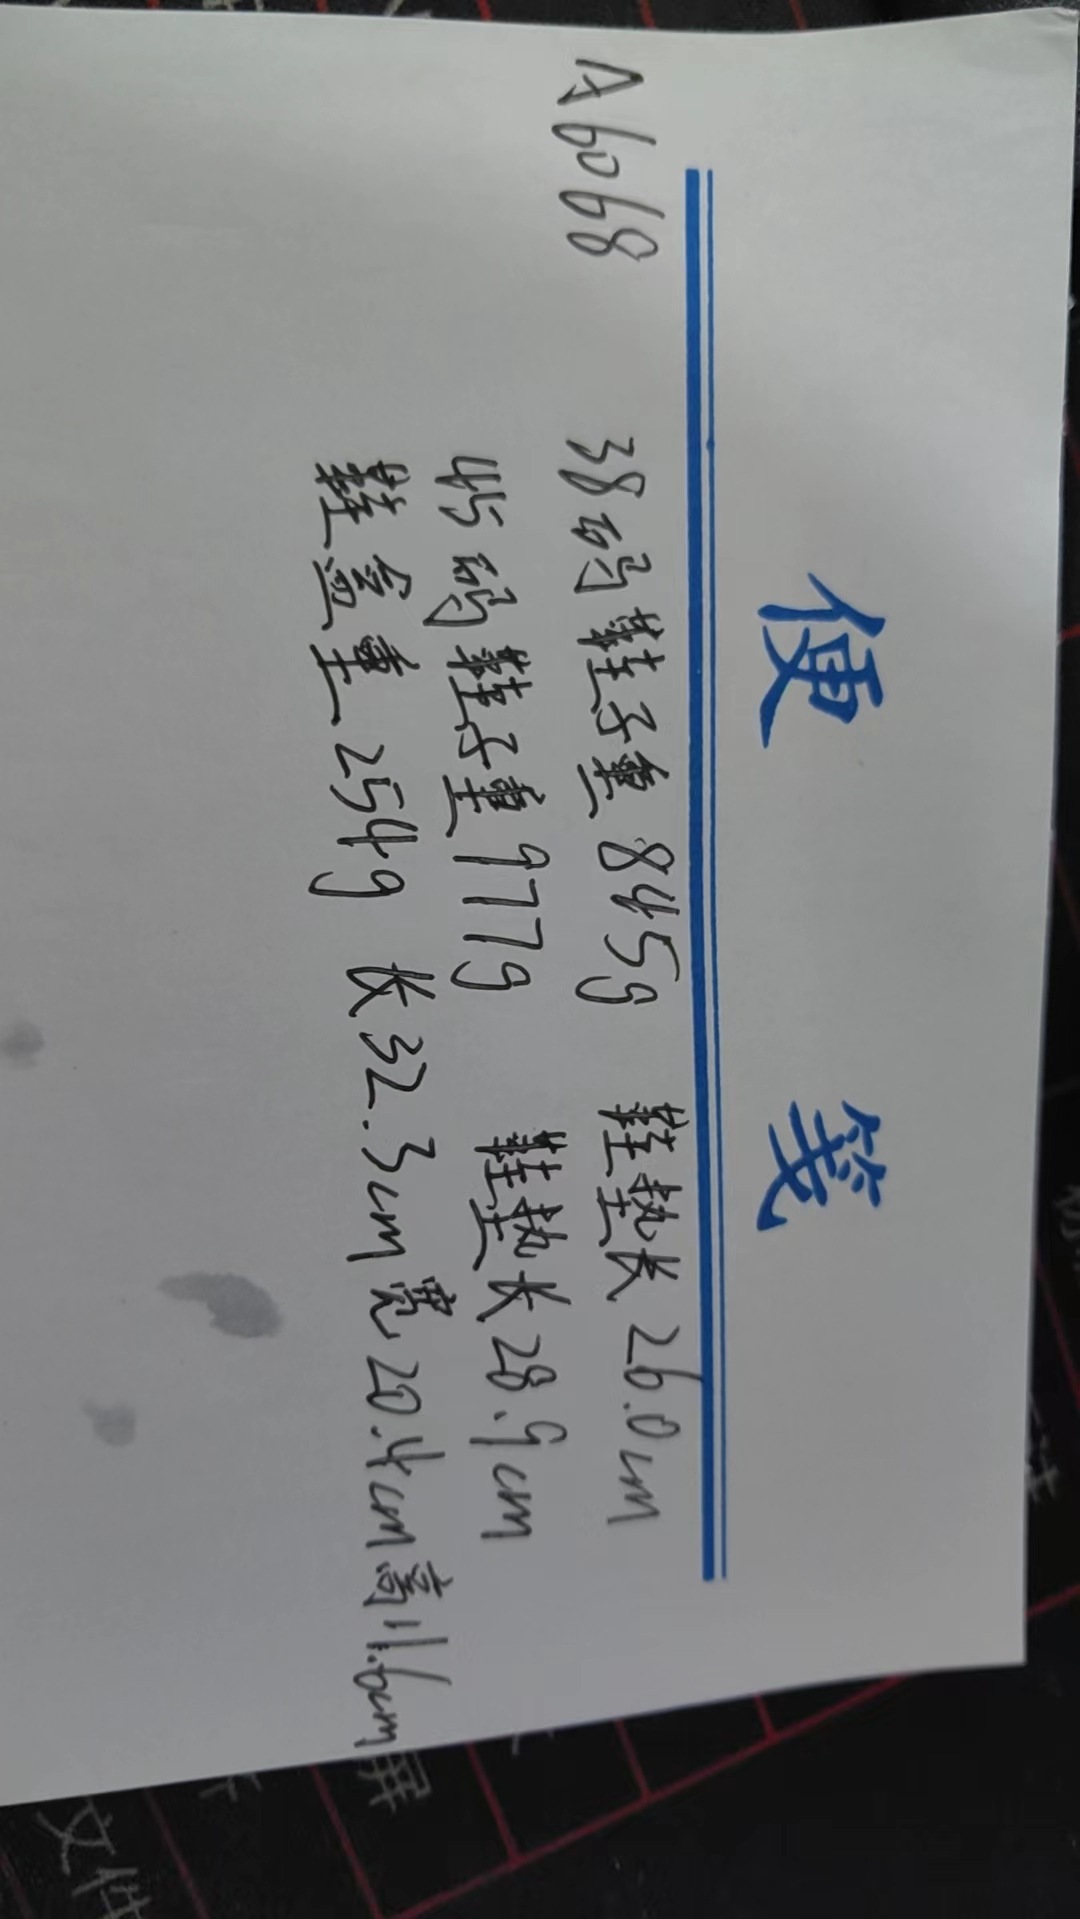 便 笺
A6068
38码鞋子重845g 鞋垫长26.0cm
45码鞋子重977g 鞋垫长28.9cm
鞋盒重254g 长32.3cm宽20.4cm高11.6cm
屏
文件